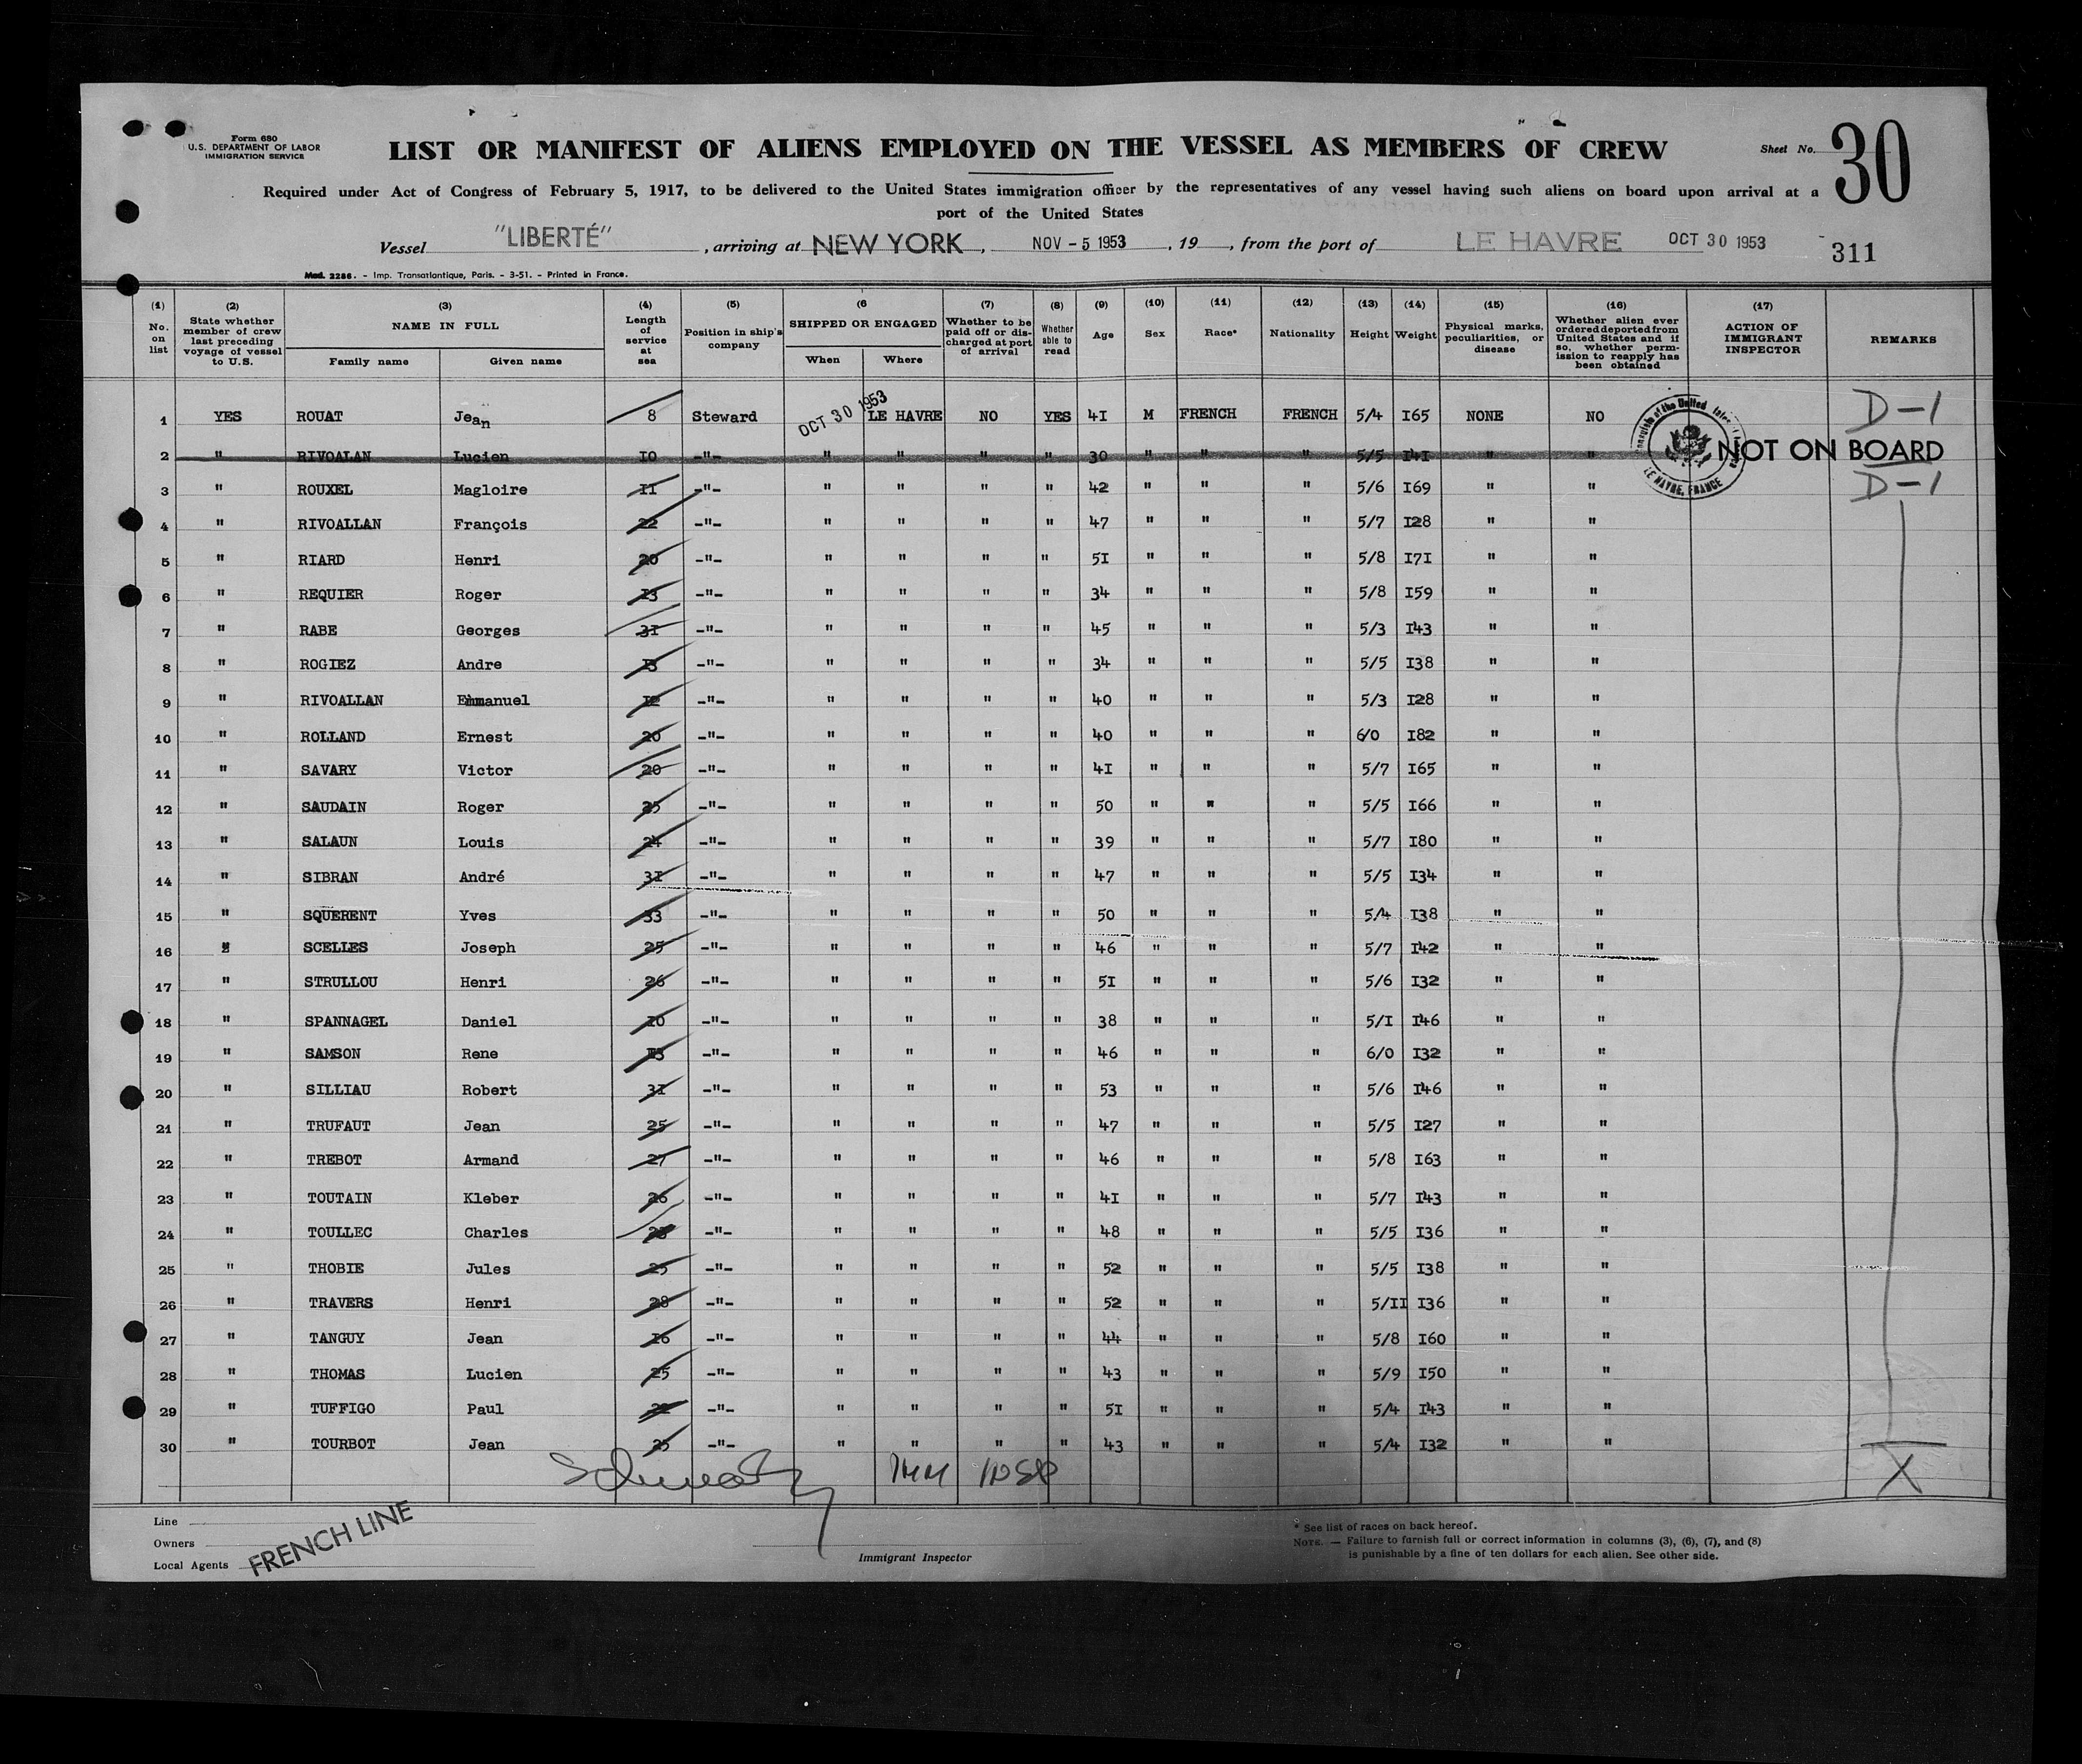 Form 680
U.S. DEPARTMENT OF LABOR
IMMIGRATION SERVICE
LIST OR MANIFEST OF ALIENS EMPLOYED ON THE VESSEL AS MEMBERS OF CREW
Sheet No. 30
Required under Act of Congress of February 5, 1917, to be delivered to the United States immigration officer by the representatives of any vessel having such aliens on board upon arrival at a
port of the United States
Vessel "LIBERTÉ", arriving at NEW YORK, NOV - 5 1953, 19, from the port of LE HAVRE OCT 30 1953
311
Mod. 2286. - Imp. Transatlantique, Paris. - 3-51. - Printed in France.
(1) No. on list (2) State whether member of crew last preceding voyage of vessel to U.S. (3) NAME IN FULL Family name Given name (4) Length of service at sea (5) Position in ship's company (6 SHIPPED OR ENGAGED When Where (7) Whether to be paid off or discharged at port of arrival (8) Whether able to read (9) Age (10) Sex (11) Race* (12) Nationality (13) Height (14) Weight (15) Physical marks, peculiarities, or disease (16) Whether alien ever ordered deported from United States and if so, whether permission to reapply has been obtained (17) ACTION OF IMMIGRANT INSPECTOR REMARKS
1 YES ROUAT Jean 8 Steward OCT 30 1953 LE HAVRE NO YES 41 M FRENCH FRENCH 5/4 165 NONE NO D-1
2 " RIVOALAN Lucien 10 -"- " " " " 30 " " " 5/5 141 " " NOT ON BOARD
3 " ROUXEL Magloire 11 -"- " " " " 42 " " " 5/6 169 " " D-1
LE HAVRE, FRANCE
4 " RIVOALLAN François 22 -"- " " " " 47 " " " 5/7 128 " "
5 " RIARD Henri 20 -"- " " " " 51 " " " 5/8 171 " "
6 " REQUIER Roger 13 -"- " " " " 34 " " " 5/8 159 " "
7 " RABE Georges 31 -"- " " " " 45 " " " 5/3 143 " "
8 " ROGIEZ Andre 13 -"- " " " " 34 " " " 5/5 138 " "
9 " RIVOALLAN Emmanuel 12 -"- " " " " 40 " " " 5/3 128 " "
10 " ROLLAND Ernest 20 -"- " " " " 40 " " " 6/0 182 " "
11 " SAVARY Victor 20 -"- " " " " 41 " " " 5/7 165 " "
12 " SAUDAIN Roger 25 -"- " " " " 50 " " " 5/5 166 " "
13 " SALAUN Louis 24 -"- " " " " 39 " " " 5/7 180 " "
14 " SIBRAN André 31 -"- " " " " 47 " " " 5/5 134 " "
15 " SQUERENT Yves 33 -"- " " " " 50 " " " 5/4 138 " "
16 " SCELLES Joseph 25 -"- " " " " 46 " " " 5/7 142 " "
17 " STRULLOU Henri 26 -"- " " " " 51 " " " 5/6 132 " "
18 " SPANNAGEL Daniel 10 -"- " " " " 38 " " " 5/1 146 " "
19 " SAMSON Rene 13 -"- " " " " 46 " " " 6/0 132 " "
20 " SILLIAU Robert 31 -"- " " " " 53 " " " 5/6 146 " "
21 " TRUFAUT Jean 25 -"- " " " " 47 " " " 5/5 127 " "
22 " TREBOT Armand 27 -"- " " " " 46 " " " 5/8 163 " "
23 " TOUTAIN Kleber 26 -"- " " " " 41 " " " 5/7 143 " "
24 " TOULLEC Charles -"- " " " " 48 " " " 5/5 136 " "
25 " THOBIE Jules 25 -"- " " " " 52 " " " 5/5 138 " "
26 " TRAVERS Henri 28 -"- " " " " 52 " " " 5/11 136 " "
27 " TANGUY Jean 16 -"- " " " " 44 " " " 5/8 160 " "
28 " THOMAS Lucien 25 -"- " " " " 43 " " " 5/9 150 " "
29 " TUFFIGO Paul -"- " " " " 51 " " " 5/4 143 " "
30 " TOURBOT Jean 25 -"- " " " " 43 " " " 5/4 132 " "
Schwartz IMM INSP X
Line
Owners
Local Agents FRENCH LINE
Immigrant Inspector
* See list of races on back hereof.
NOTE. — Failure to furnish full or correct information in columns (3), (6), (7), and (8)
is punishable by a fine of ten dollars for each alien. See other side.